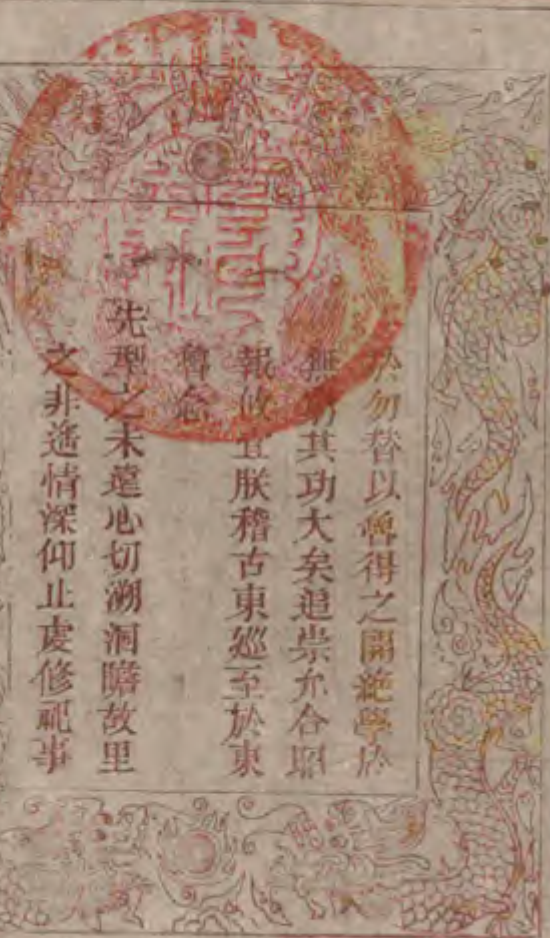 於勿替以魯得之開絕學於
無窮其功大矣追崇允合昭
報攸宜朕稽古東巡至於東
魯念
先型之未遠心切溯洄瞻故里
之非遙情深仰止虔修祀事